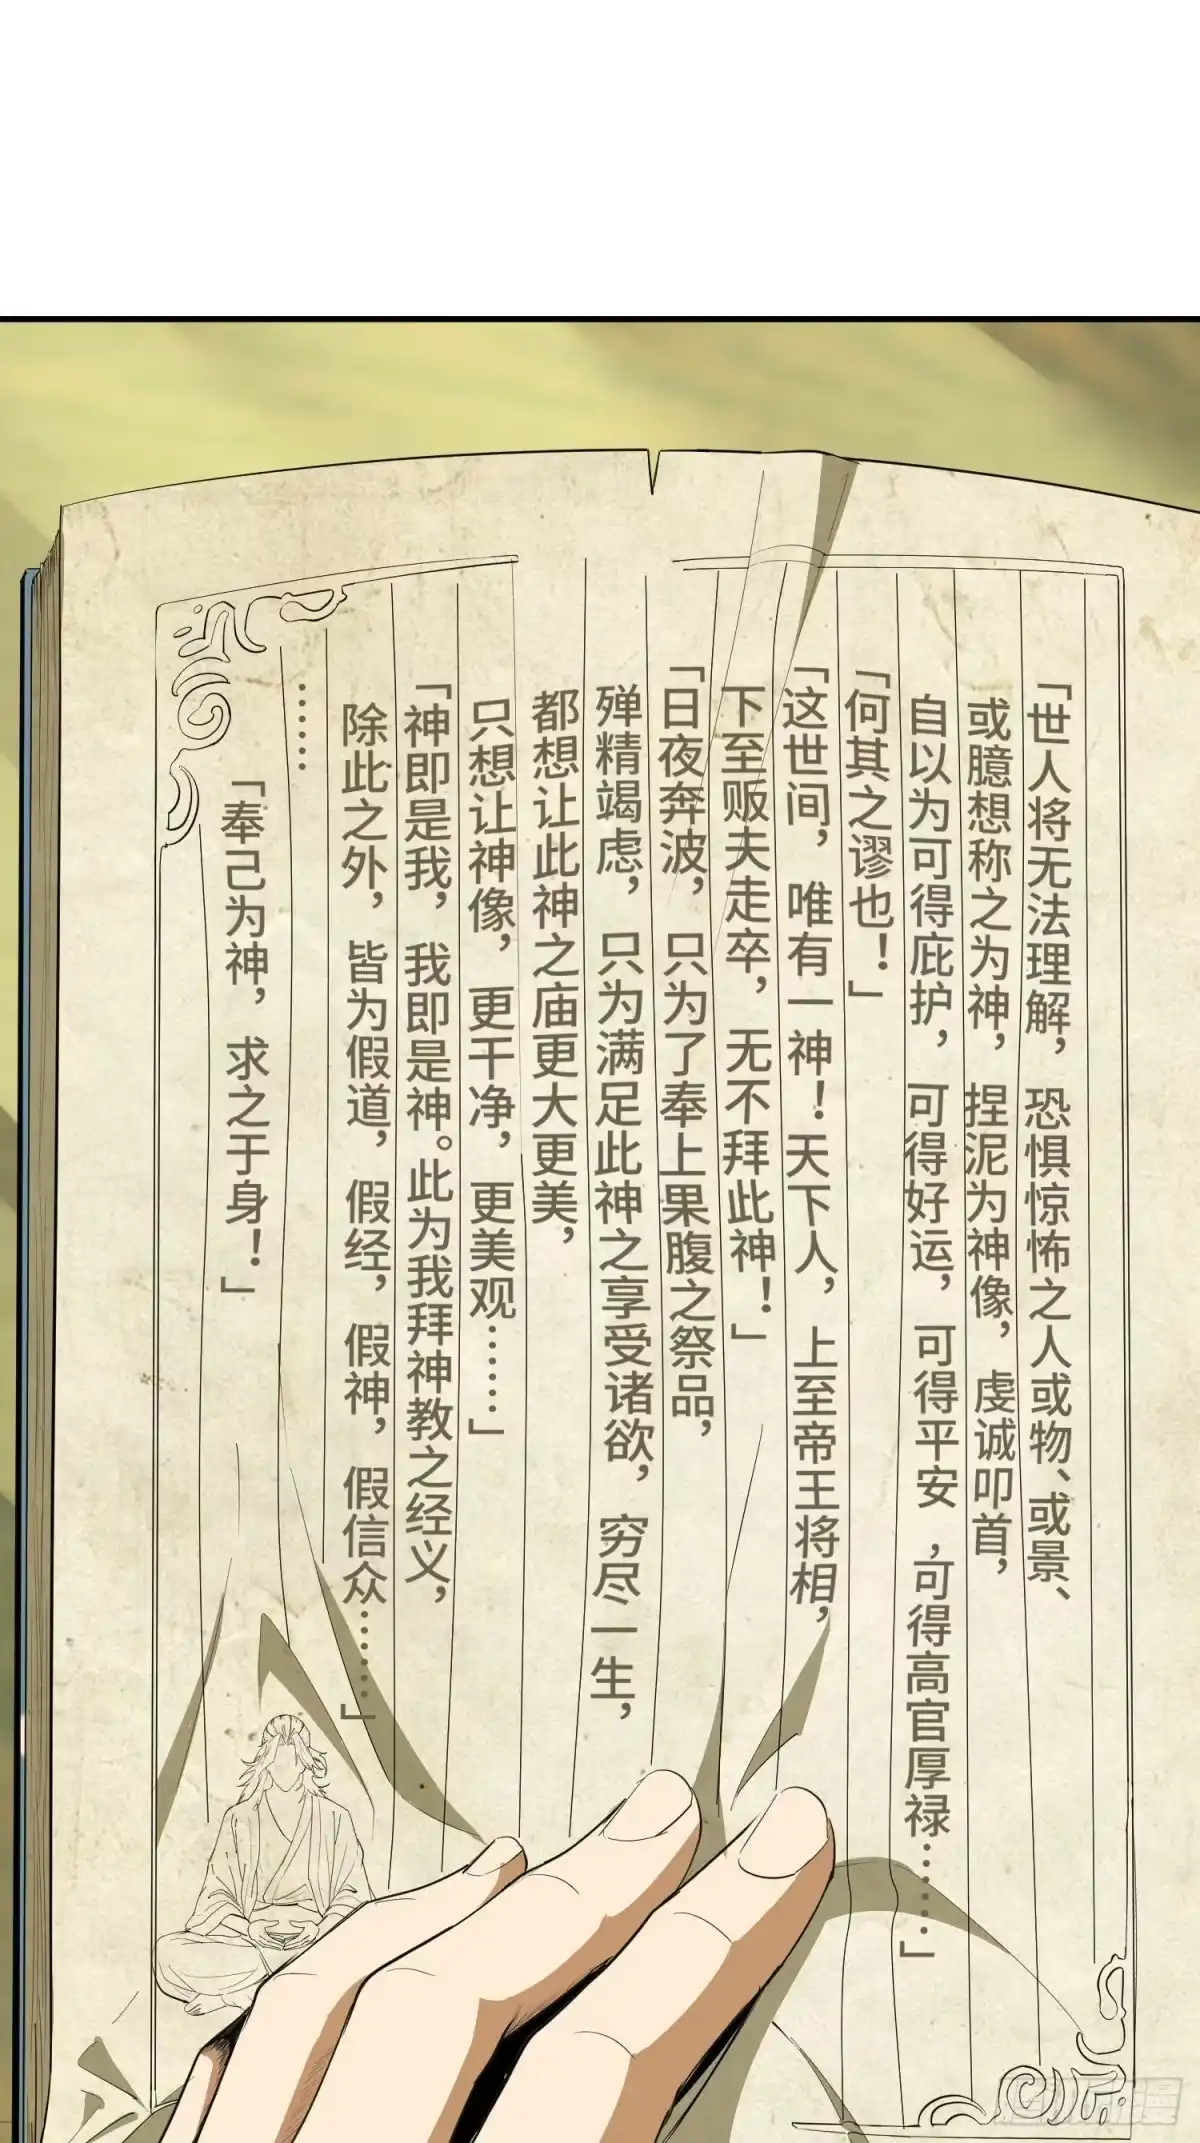 「世人将无法理解，恐惧惊怖之人或物、或景、
或臆想称之为神，捏泥为神像，虔诚叩首，
自以为可得庇护，可得好运，可得平安，可得高官厚禄……」
「何其之谬也！」
「这世间，唯有一神！天下人，上至帝王将相，
下至贩夫走卒，无不拜此神！」
「日夜奔波，只为了奉上果腹之祭品，
殚精竭虑，只为满足此神之享受诸欲，穷尽一生，
都想让此神之庙更大更美，
只想让神像，更干净，更美观……」
「神即是我，我即是神。此为我拜神教之经义，
除此之外，皆为假道，假经，假神，假信众……」
……
「奉己为神，求之于身！」